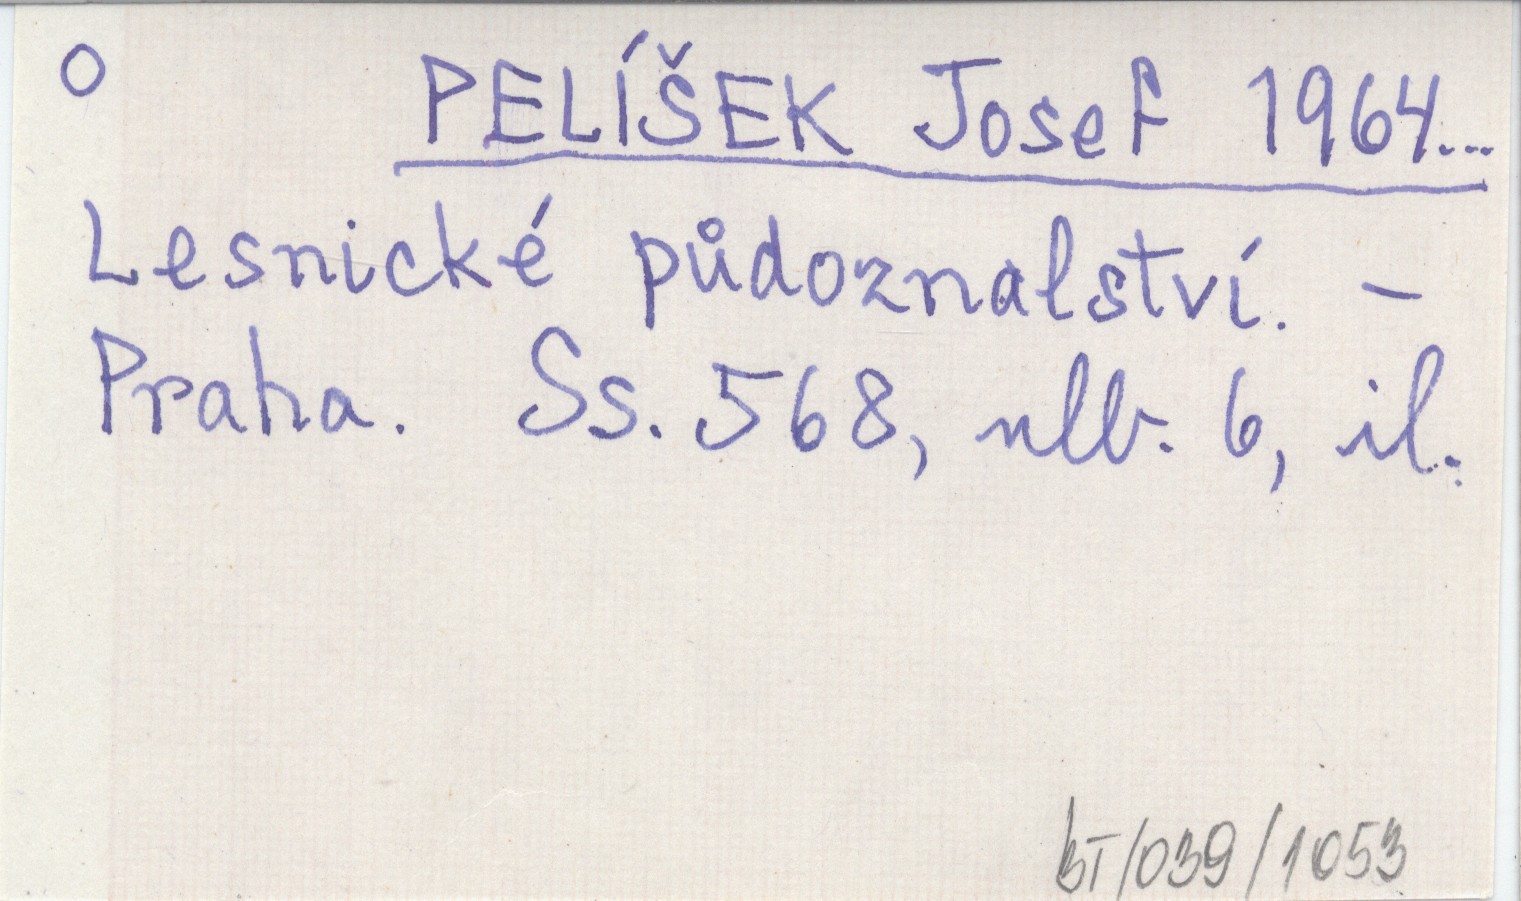 O PELÍŠEK Josef 1964...
Lesnické půdoznalství. –
Praha. Ss. 568, nlb. 6, il.
bT/039/1053